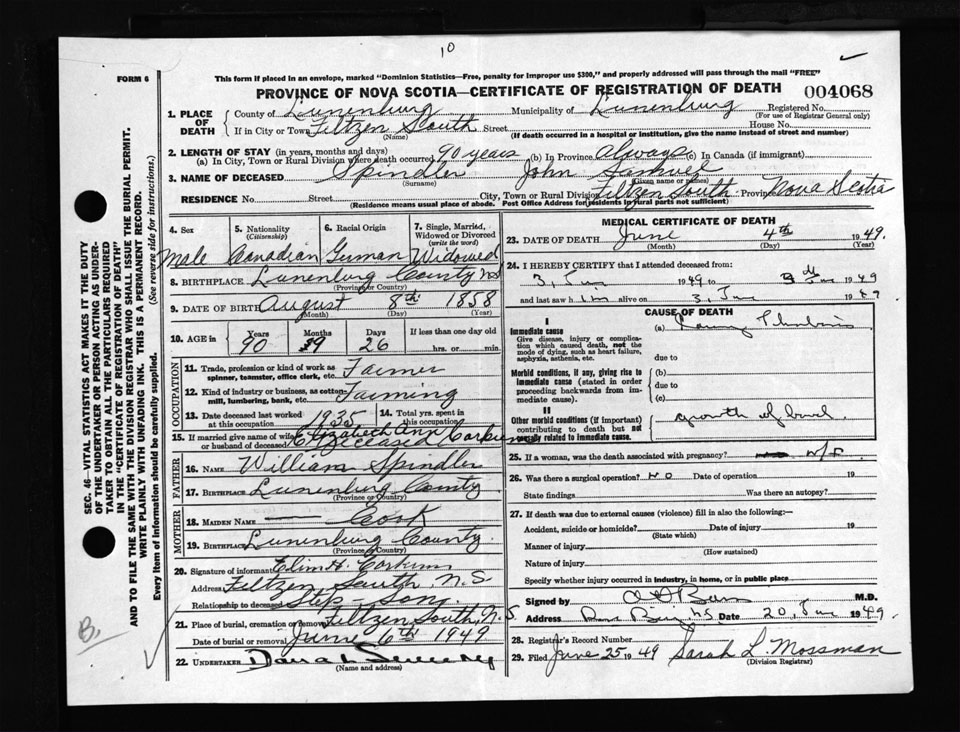 10
FORM 6
This form if placed in an envelope, marked "Dominion Statistics—Free, penalty for improper use $300," and properly addressed will pass through the mail "FREE"
PROVINCE OF NOVA SCOTIA—CERTIFICATE OF REGISTRATION OF DEATH 004068
SEC. 46—VITAL STATISTICS ACT MAKES IT THE DUTY
OF THE UNDERTAKER OR PERSON ACTING AS UNDER-
TAKER TO OBTAIN ALL THE PARTICULARS REQUIRED
IN THE "CERTIFICATE OF REGISTRATION OF DEATH"
AND TO FILE THE SAME WITH THE DIVISION REGISTRAR WHO SHALL ISSUE THE BURIAL PERMIT.
WRITE PLAINLY WITH UNFADING INK. THIS IS A PERMANENT RECORD.
Every item of information should be carefully supplied. (See reverse side for instructions.)
B.
1. PLACE OF DEATH
County of Lunenburg Municipality of Lunenburg Registered No.
(For use of Registrar General only)
If in City or Town Feltzen South Street House No.
(Name) (If death occurred in a hospital or institution, give the name instead of street and number)
2. LENGTH OF STAY (in years, months and days)
(a) In City, Town or Rural Division where death occurred 90 years (b) In Province Always (c) In Canada (if immigrant)
3. NAME OF DECEASED Spindler John Samuel
(Surname) (Given name or names)
RESIDENCE No. Street City, Town or Rural Division Feltzen South Province Nova Scotia
(Residence means usual place of abode. Post Office Address for residents in rural parts not sufficient)
4. Sex 5. Nationality (Citizenship) 6. Racial Origin 7. Single, Married, Widowed or Divorced (write the word)
Male Canadian German Widowed
8. BIRTHPLACE Lunenburg County NS
(Province or Country)
9. DATE OF BIRTH August 8th 1858
(Month) (Day) (Year)
10. AGE in Years Months Days If less than one day old
90 9 26 hrs. or min.
OCCUPATION
11. Trade, profession or kind of work as spinner, teamster, office clerk, etc. Farmer
12. Kind of industry or business, as cotton-mill, lumbering, bank, etc. Farming
13. Date deceased last worked at this occupation 1935 14. Total yrs. spent in this occupation
15. If married give name of wife or husband of deceased Elizabeth Ann Corkum
Deceased
FATHER
16. NAME William Spindler
17. BIRTHPLACE Lunenburg County
(Province or Country)
MOTHER
18. MAIDEN NAME — Cook
19. BIRTHPLACE Lunenburg County.
(Province or Country)
20. Signature of informant H. Corkum
Address Feltzen South, N.S
Relationship to deceased Step-Son.
21. Place of burial, cremation or removal Feltzen South, N.S.
Date of burial or removal June 6th 1949
22. UNDERTAKER
(Name and address)
MEDICAL CERTIFICATE OF DEATH
23. DATE OF DEATH June 4th 1949
(Month) (Day) (Year)
24. I HEREBY CERTIFY that I attended deceased from:
3, Jun 1949 to 3 Jun 1949
and last saw him alive on 3, Jun 1949
CAUSE OF DEATH
I
Immediate cause (a)
Give disease, injury or complication which caused death, not the mode of dying, such as heart failure, asphyxia, asthenia, etc. due to
Morbid conditions, if any, giving rise to immediate cause (stated in order proceeding backwards from immediate cause). (b)
due to
(c)
II
Other morbid conditions (if important) contributing to death but not causally related to immediate cause. growth of bowel
25. If a woman, was the death associated with pregnancy?
26. Was there a surgical operation? NO Date of operation 19
State findings Was there an autopsy?
27. If death was due to external causes (violence) fill in also the following:—
Accident, suicide or homicide? Date of injury 19
(State which)
Manner of injury
(How sustained)
Nature of injury
Specify whether injury occurred in industry, in home, or in public place
Signed by M.D.
Address Date 20, Jun 1949
28. Registrar's Record Number
29. Filed June 25 1949 Sarah L. Mossman
(Division Registrar)